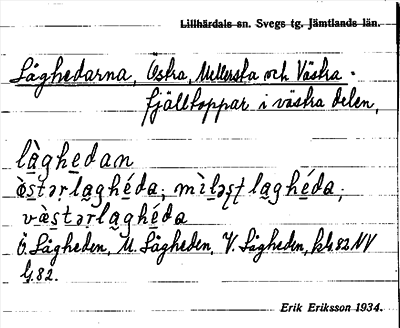 Lillhärdals sn. Svegs tg. Jämtlands län.
Låghedarna, Östra, Mellersta och Västra.
fjälltoppar i västra delen,
làghedan
ɷ̀stərlaghéda; mìləʂʈlaghéda;
væ̀stərlaghéda
Ö. Lågheden, M. Lågheden, V. Lågheden, kbl. 82 NV
G. 82.
Erik Eriksson 1934.